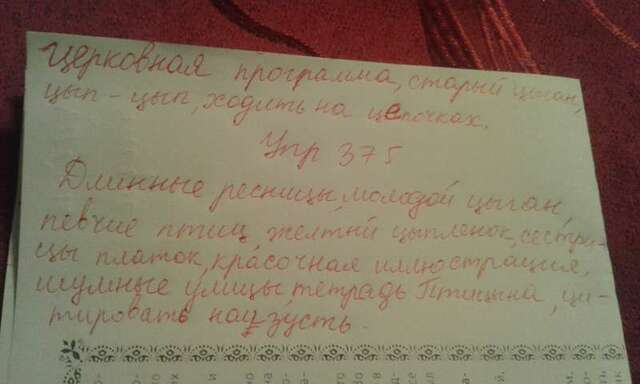 Церковная программа, старый цыган,
цып-цып, ходить на цепочках.
Упр 375
Длинные ресницы, молодой цыган,
певчие птиц желтый цыпленок, сестри-
цы платок, красочная иллюстрация,
шумные улицы тетрадь Птицына, ци-
тировать наизусть.